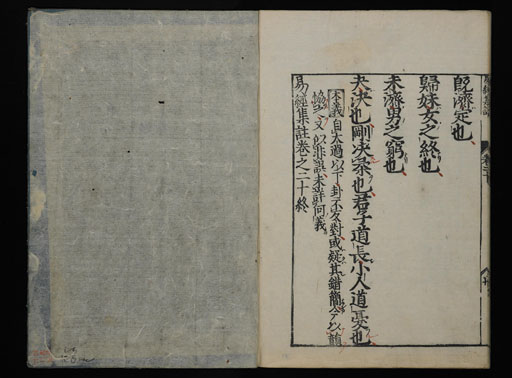 既濟定也
歸妹女之終也
未濟男之窮也
夬決也剛決柔也君子道長小人道憂也
本義自大過以下卦不反對或疑其錯簡今以韻
協之又似非誤未詳何義
易經集註卷之二十終